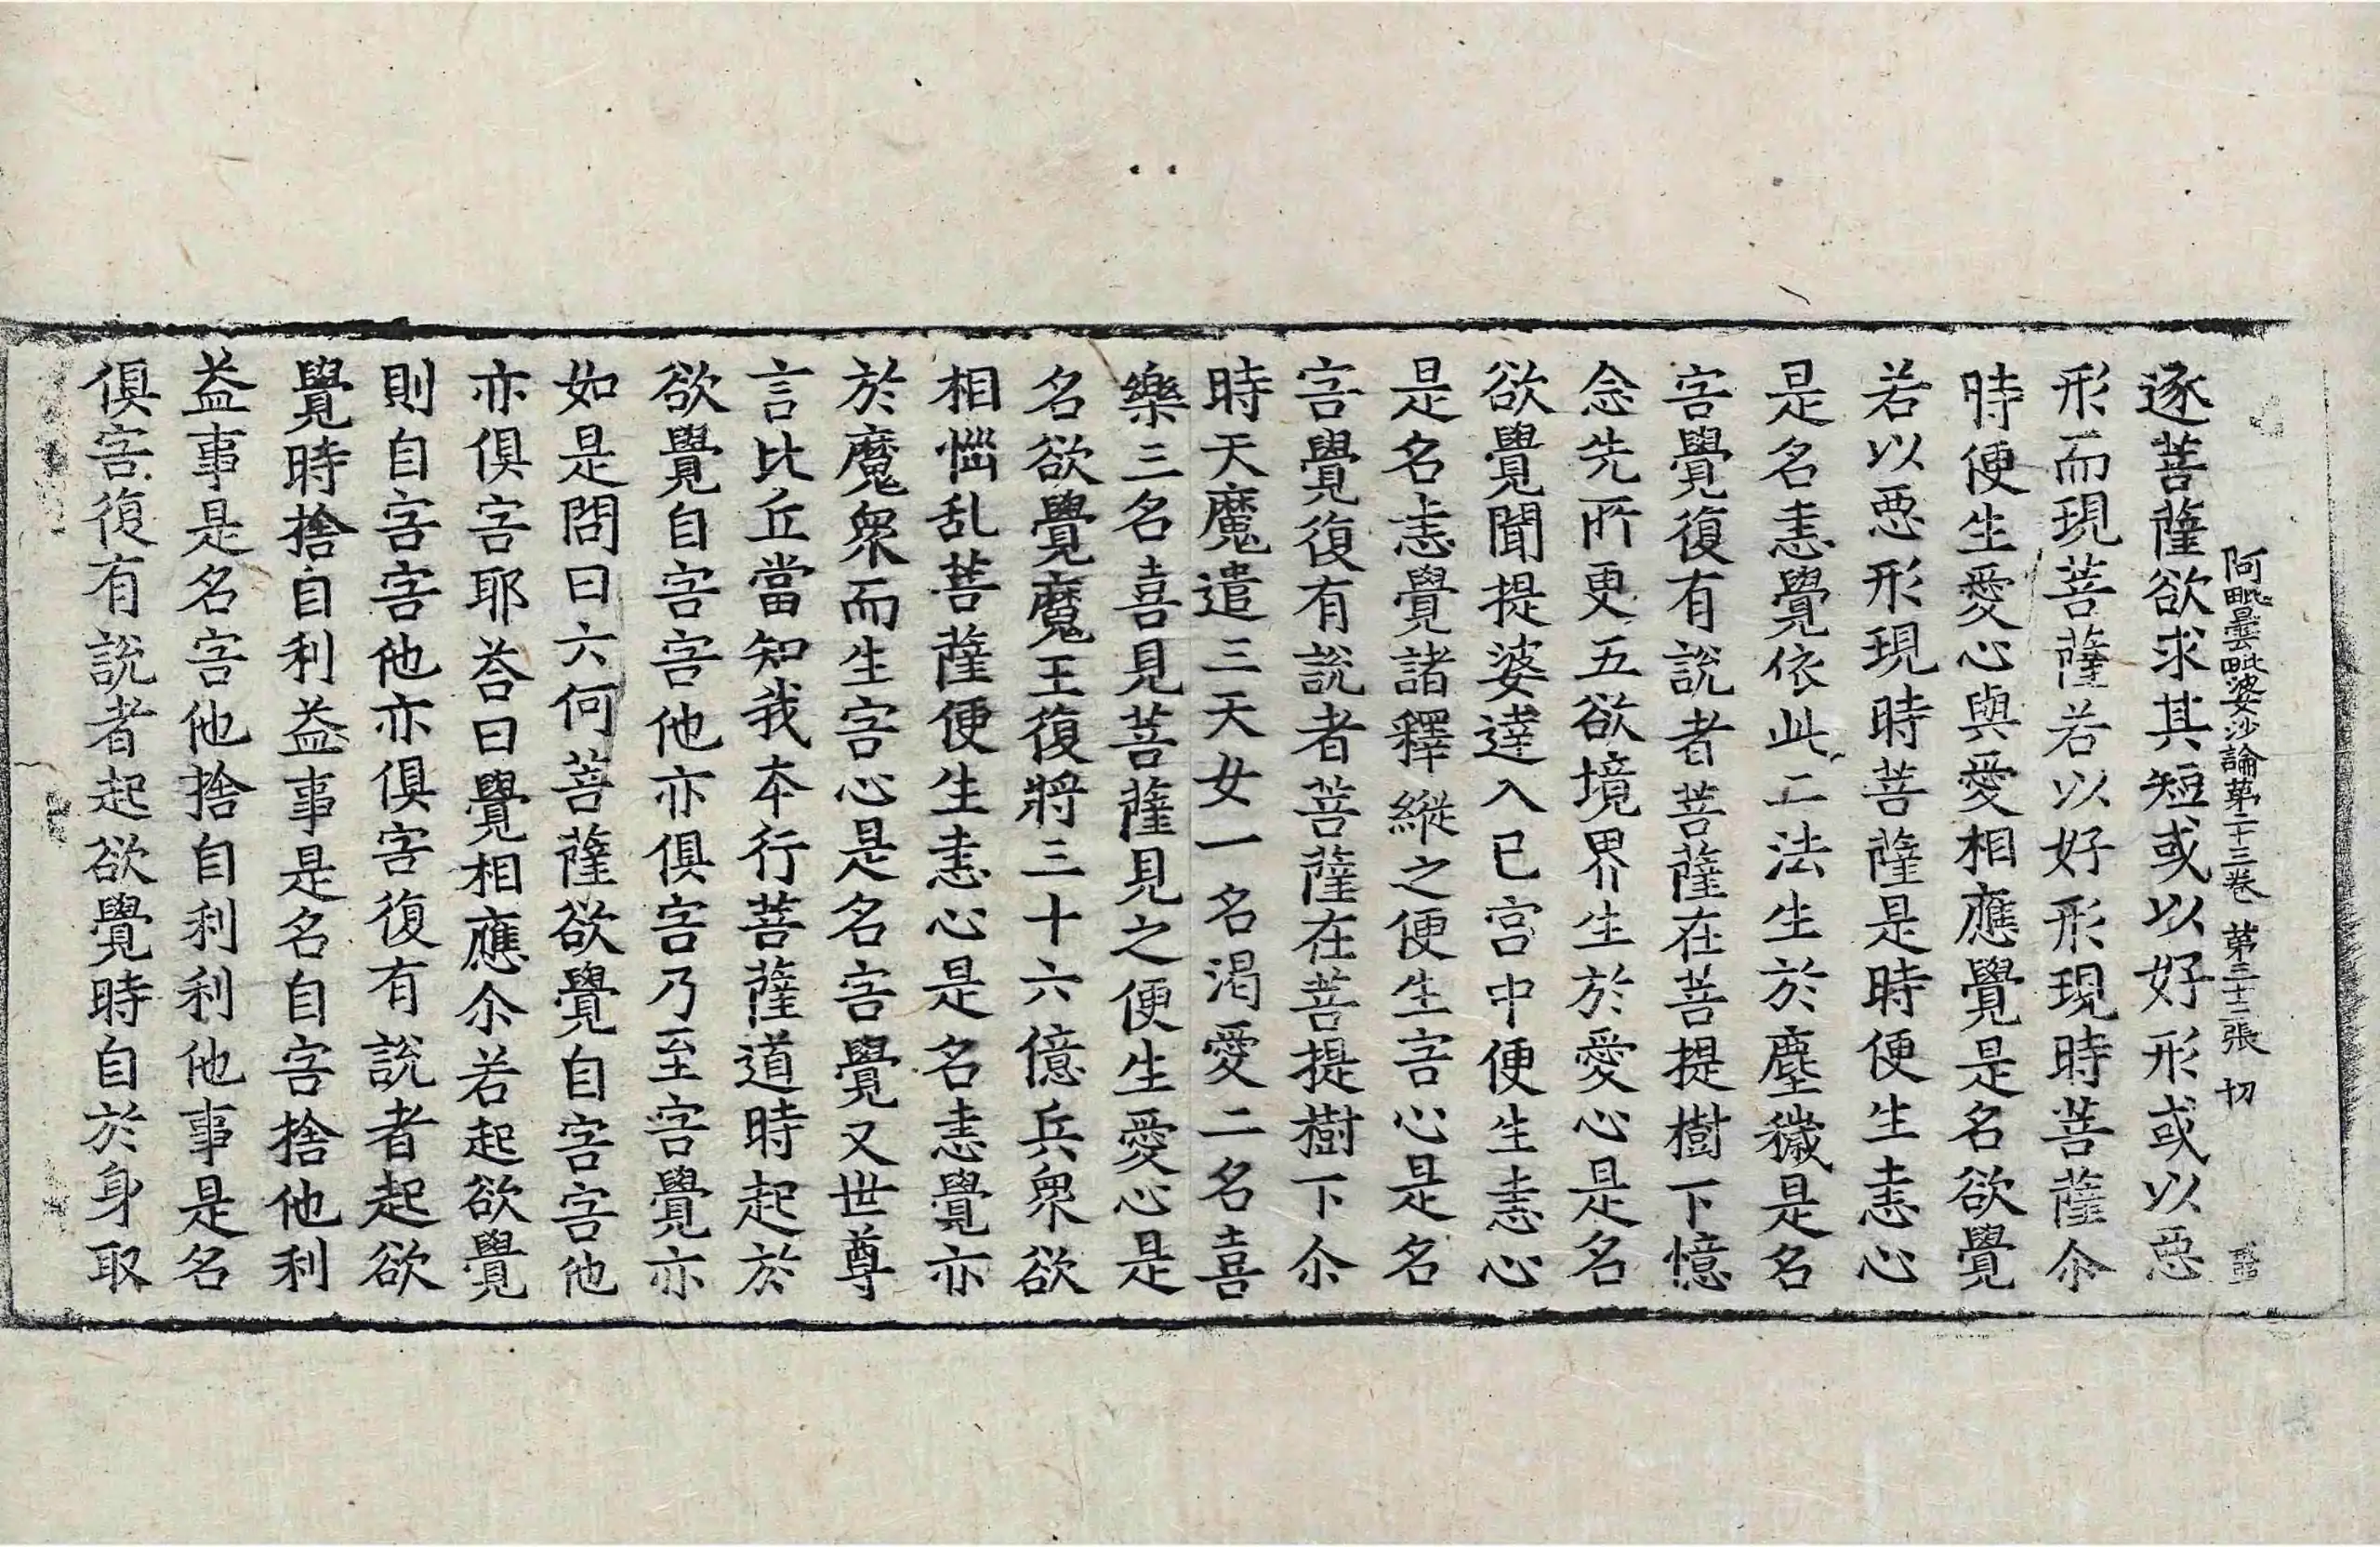 阿毗曇毗婆沙論第二十三卷 第三十二張 切
逐菩薩欲求其短或以好形或以惡
形而現菩薩若以好形現時菩薩尒
時便生愛心與愛相應覺是名欲覺
若以惡形現時菩薩是時便生恚心
是名恚覺依此二法生於塵穢是名
害覺復有說者菩薩在菩提樹下憶
念先所更五欲境界生於愛心是名
欲覺聞提婆達入已宮中便生恚心
是名恚覺諸釋縱之便生害心是名
害覺復有說者菩薩在菩提樹下尒
時天魔遣三天女一名渴愛二名喜
樂三名喜見菩薩見之便生愛心是
名欲覺魔王復將三十六億兵衆欲
相惱乱菩薩便生恚心是名恚覺亦
於魔衆而生害心是名害覺又世尊
言比丘當知我本行菩薩道時起於
欲覺自害害他亦俱害乃至害覺亦
如是問曰六何菩薩欲覺自害害他
亦俱害耶荅曰覺相應尒若起欲覺
則自害害他亦俱害復有說者起欲
覺時捨自利益事是名自害捨他利
益事是名害他捨自利利他事是名
俱害復有說者起欲覺時自於身取